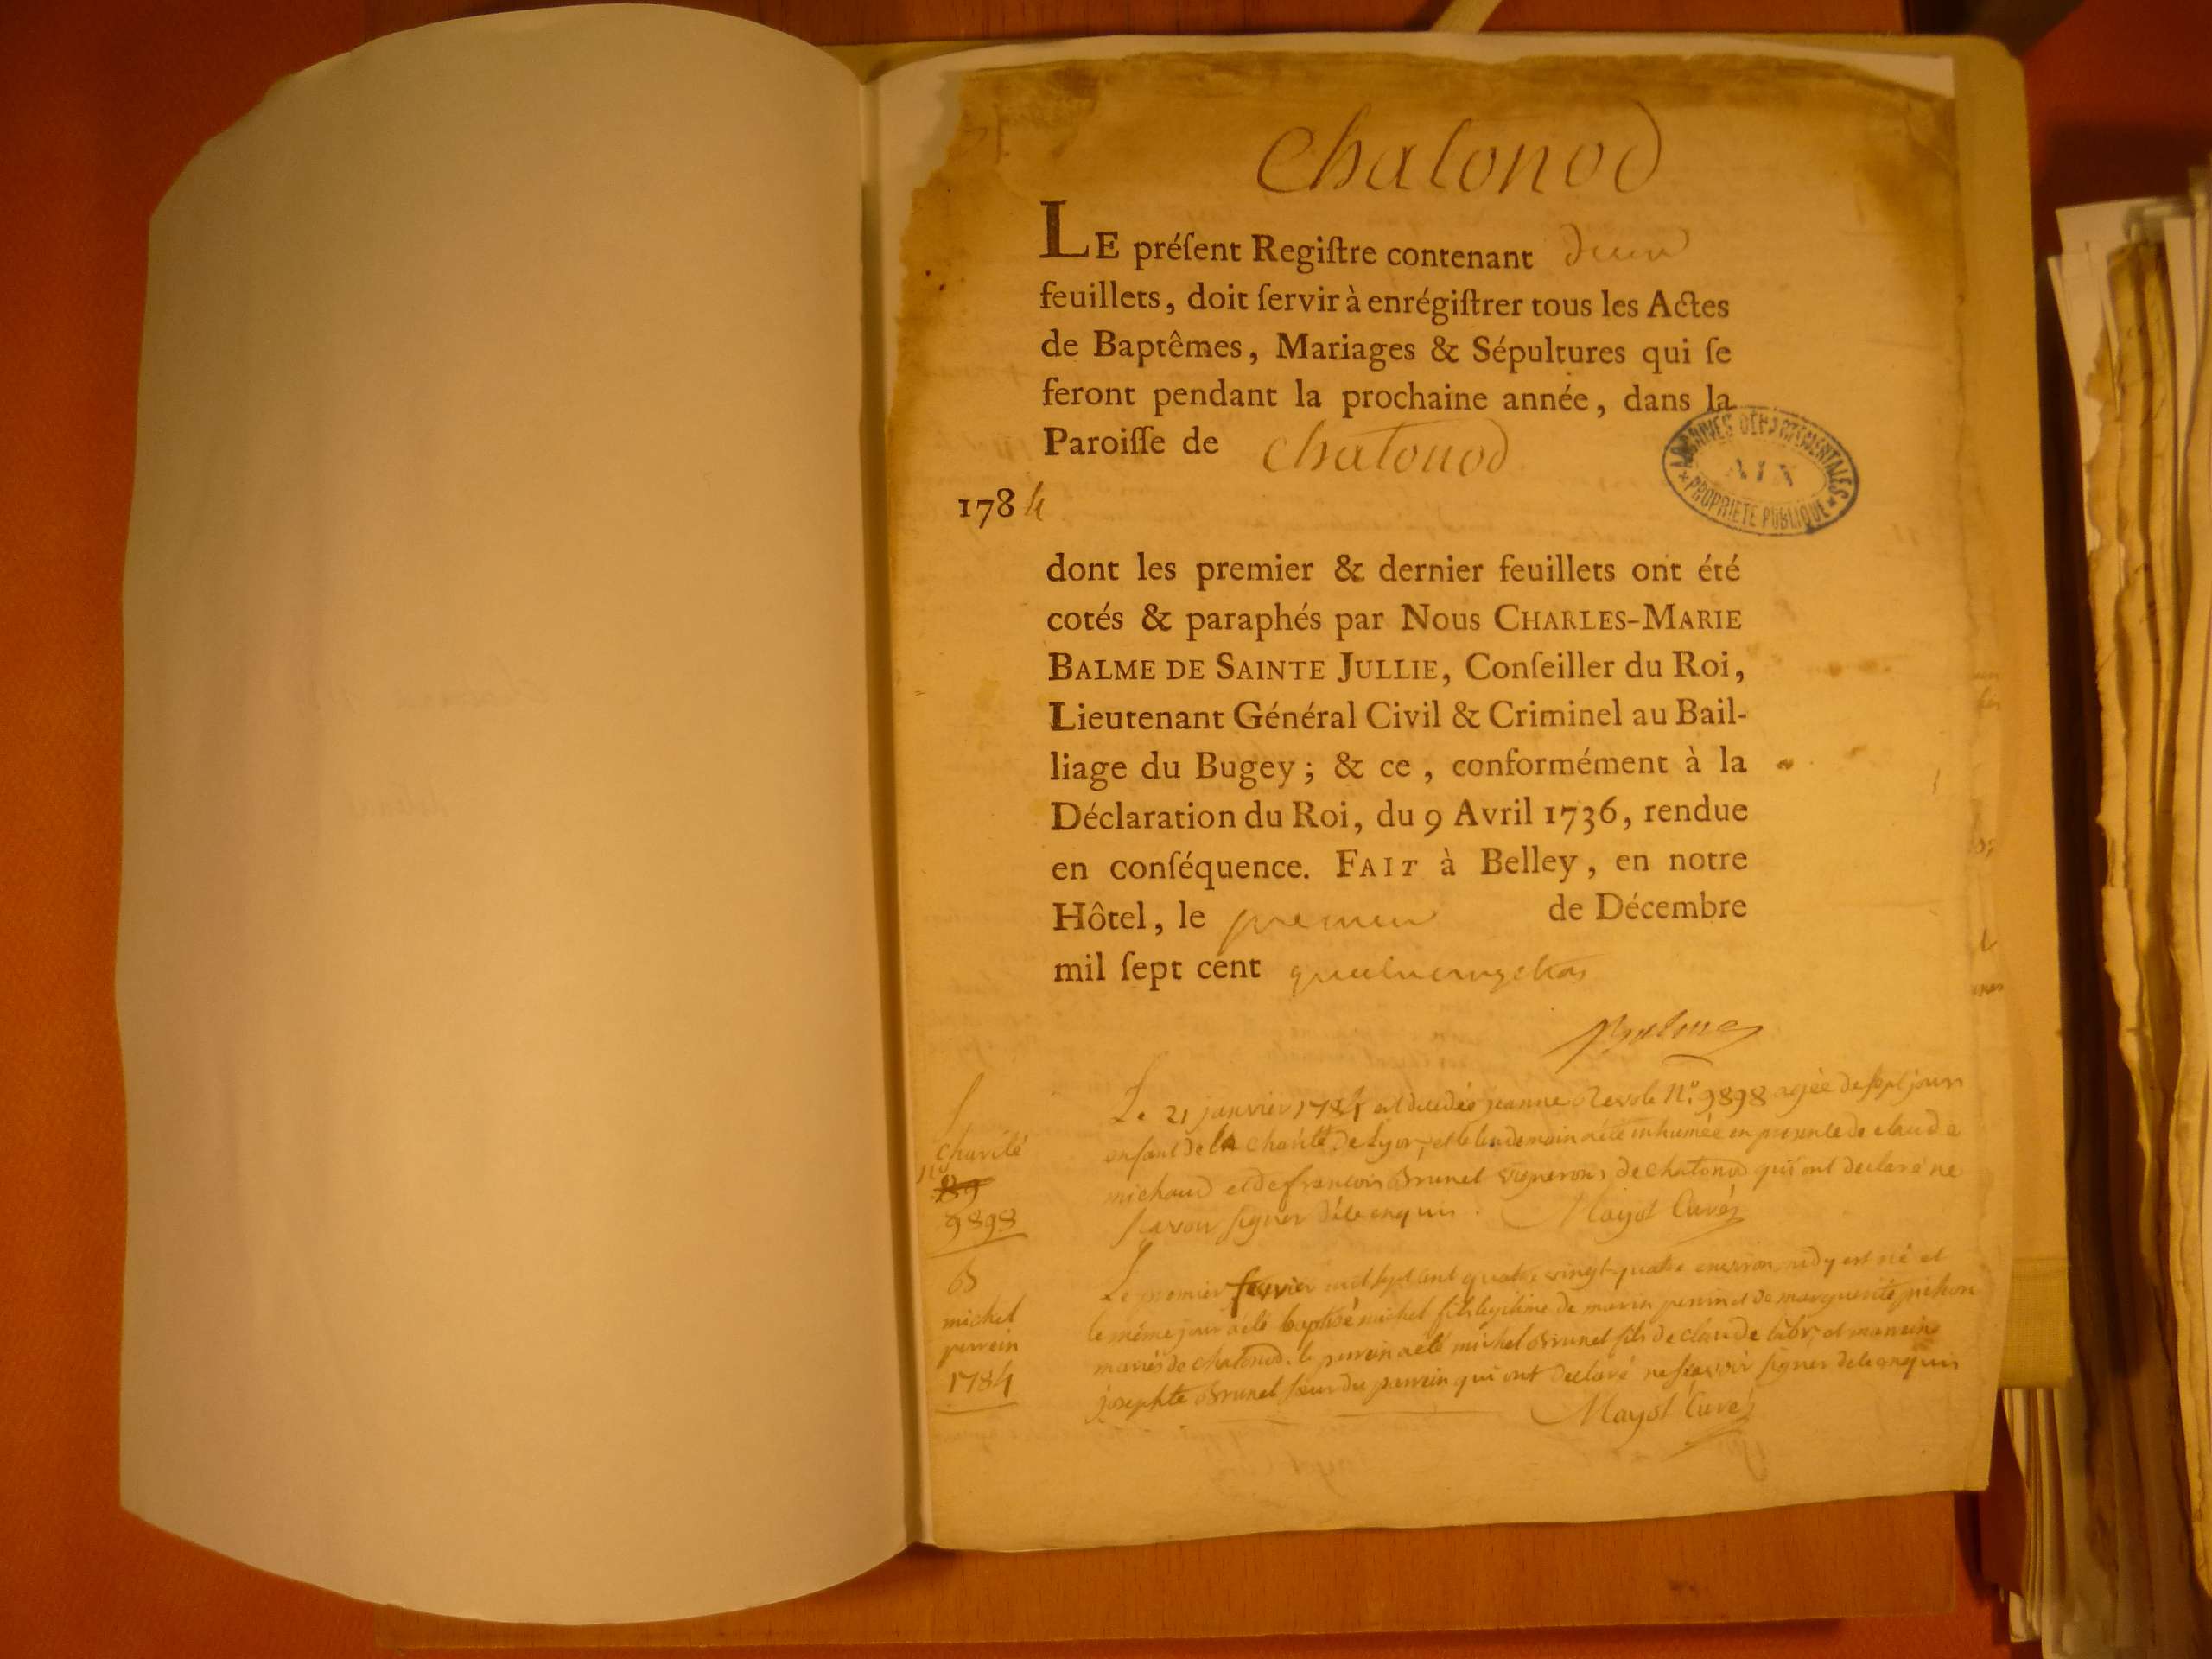 Chatonod
LE préſent Regiſtre contenant deux
feuillets, doit ſervir à enrégiſtrer tous les Actes
de Baptêmes, Mariages & Sépultures qui ſe
feront pendant la prochaine année, dans la
Paroiſſe de chatonod
1784
ARCHIVES DÉPARTEMENTALES
AIN
PROPRIETE PUBLIQUE
dont les premier & dernier feuillets ont été
cotés & paraphés par Nous CHARLES-MARIE
BALME DE SAINTE JULLIE, Conſeiller du Roi,
Lieutenant Général Civil & Criminel au Bail-
liage du Bugey ; & ce, conformément à la
Déclaration du Roi, du 9 Avril 1736, rendue
en conſéquence. FAIT à Belley, en notre
Hôtel, le premier de Décembre
mil ſept cent quatrevingt trois
Balme
charité
nº
89
9898
Le 21 janvier 1784 est decedée jeanne N.º 9898 agée de sept jours
enfant de la charité de Lyon, et le lendemain a été inhumée en presence de claude
michaud et de francois Brunet vignerons de chatonod qui ont declaré ne
scavoir signer de ce enquis. Mayot Curé
B
michel
perrein
1784
Le premier fevrier mil sept cent quatre vingt quatre environ midy est né et
le même jour a été baptisé michel fils legitime de marin perrin et de marguerite pichon
mariés de chatonod. le parrein a été michel Brunet fils de claude et marreine
josephte Brunet sœur du parrein qui ont declaré ne scavoir signer de ce enquis
Mayot Curé